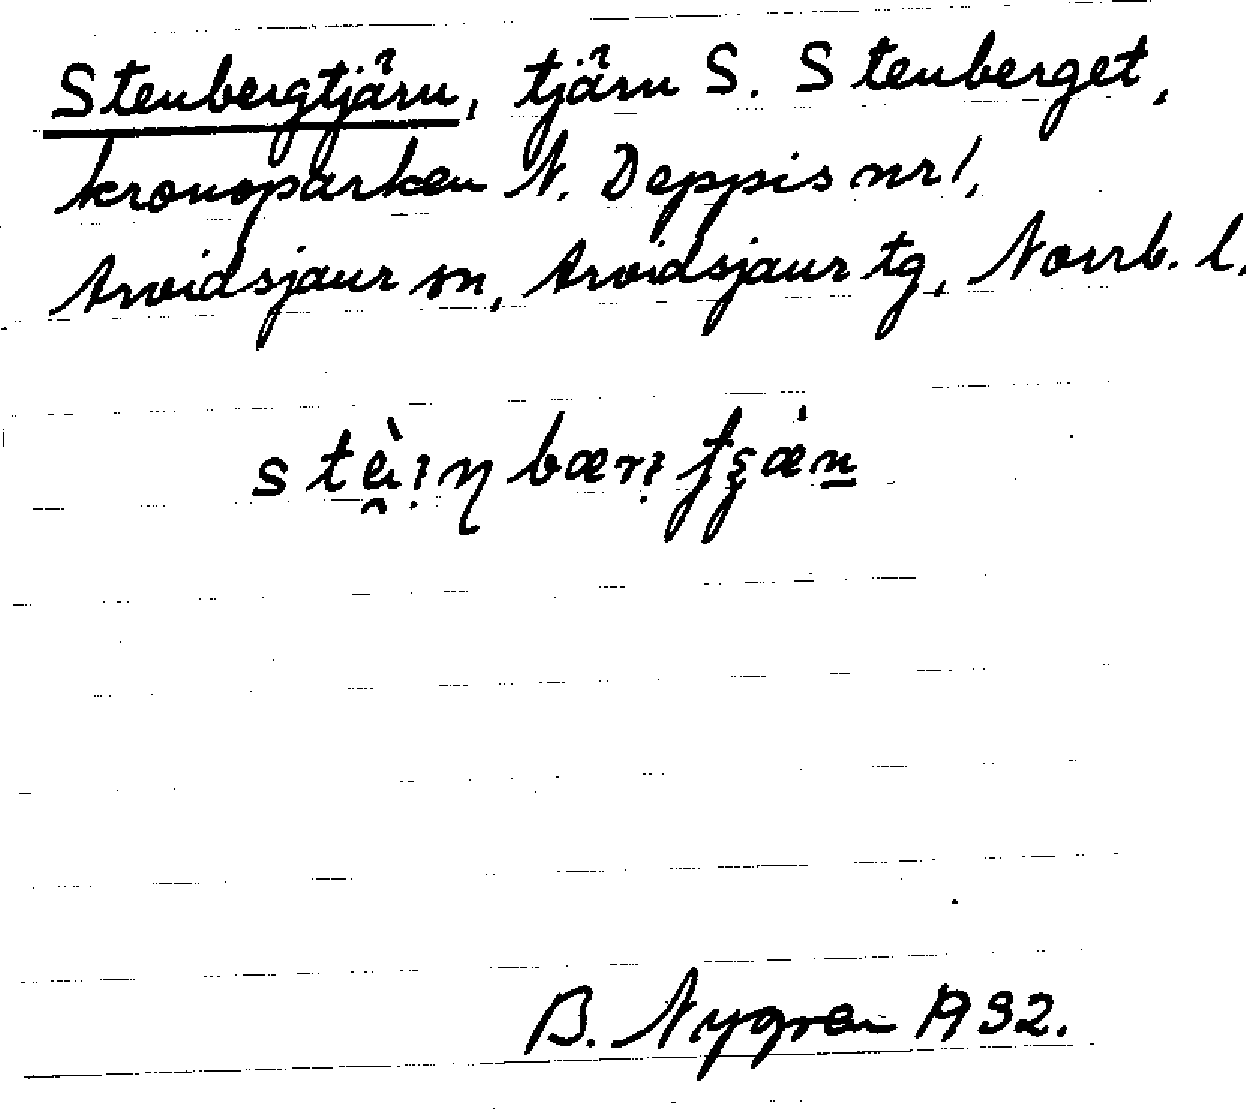 Stenbergtjärn, tjärn S. Stenberget,
kronoparken N. Deppis nr 1,
Arvidsjaur sn, Arvidsjaur tg, Norrb. l.
B. Nygren 1932.